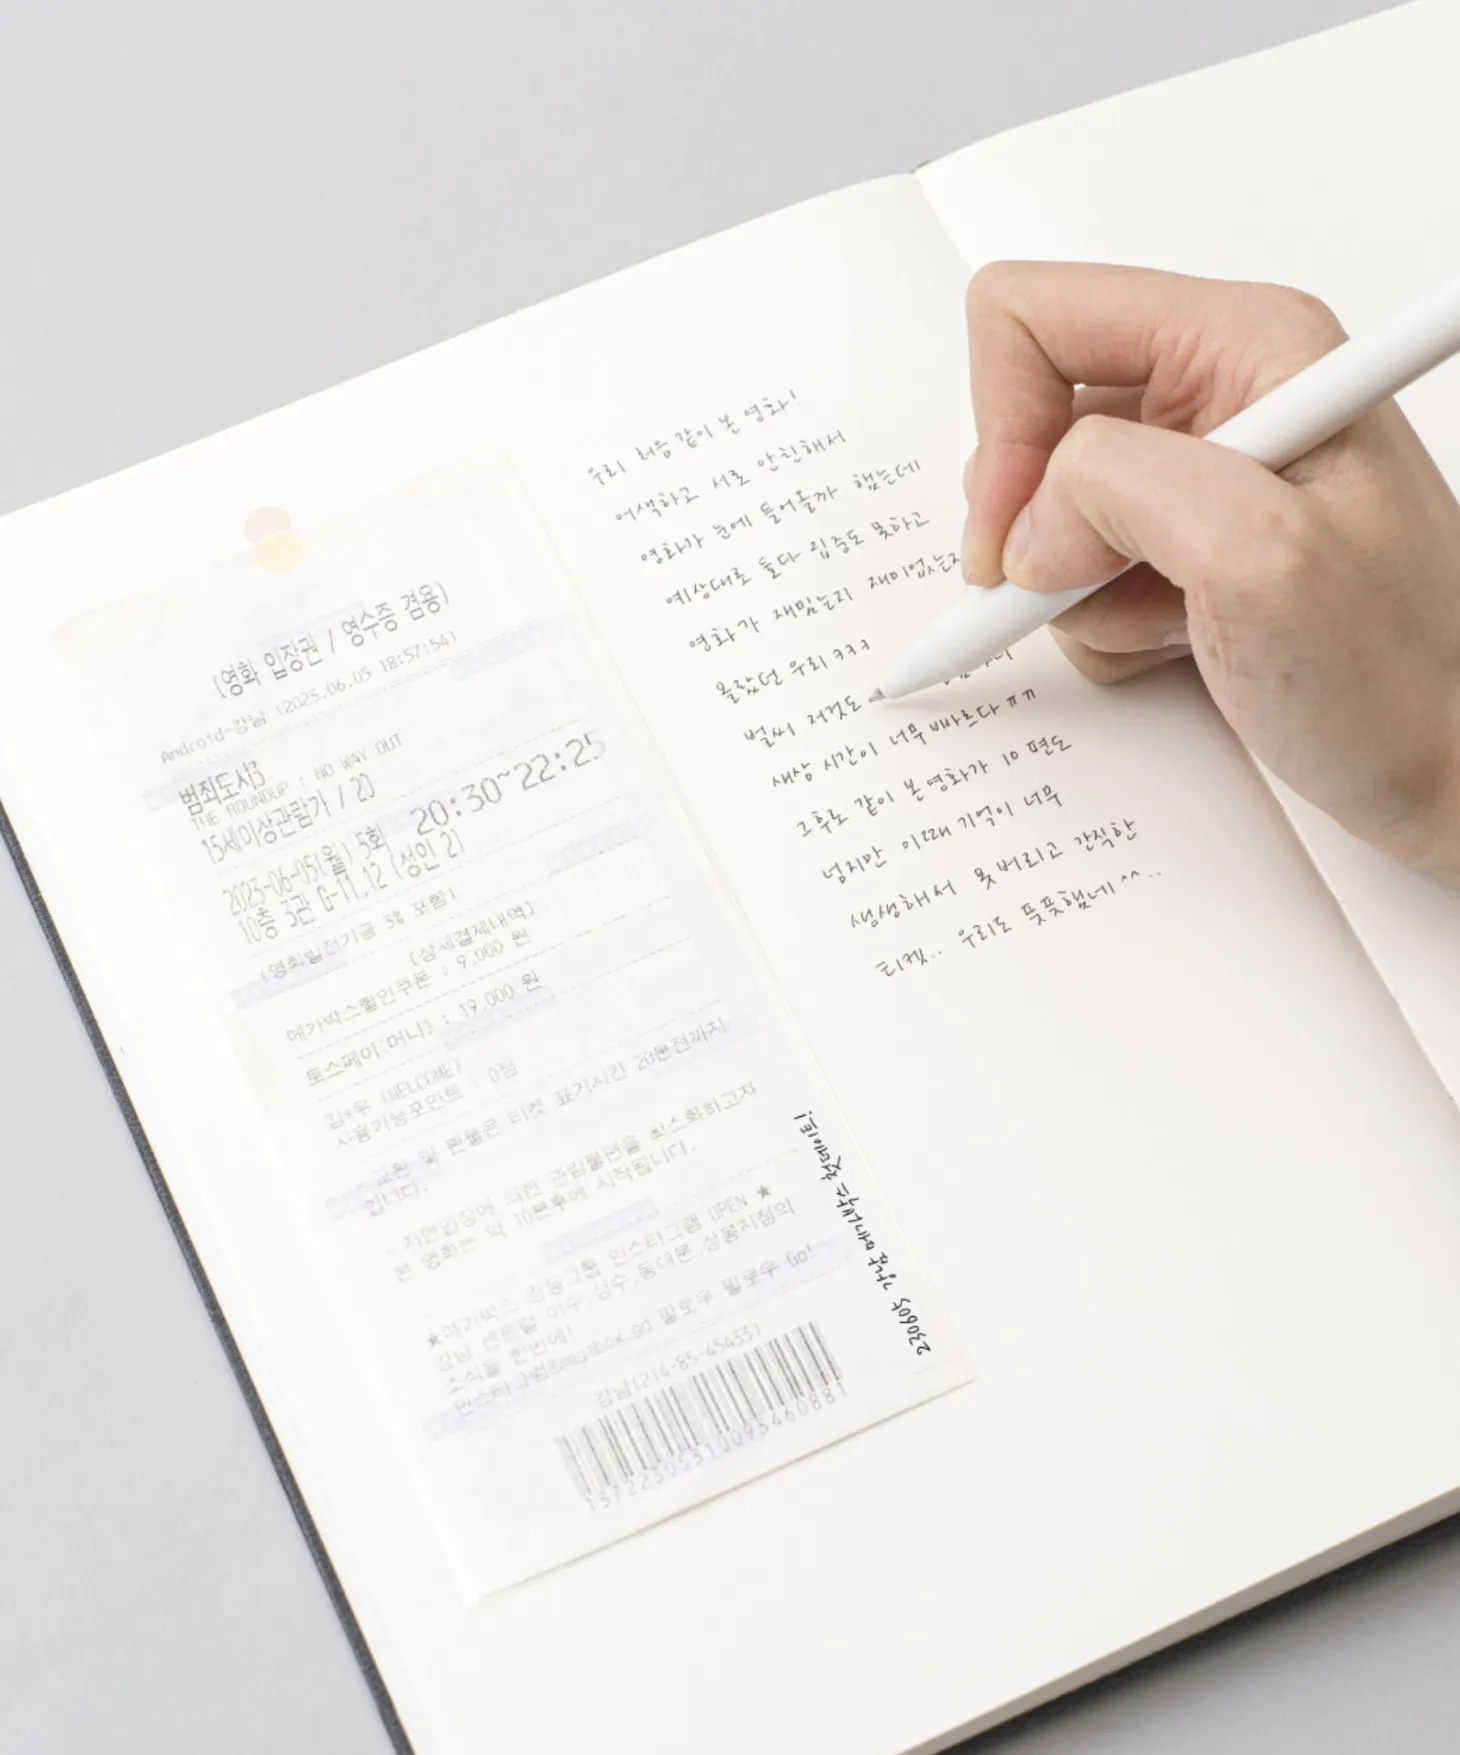 (영화 입장권 / 영수증 겸용)
Android-강남 (2023.06.05 18:57:54)
범죄도시3
THE ROUNDUP : NO WAY OUT
15세이상관람가 / 2D
2023-06-05(월) 5회 20:30~22:25
10층 3관 G-11,12 (성인 2)
(영화발전기금 3% 포함)
[상세결제내역]
메가박스할인쿠폰 : 9,000 원
토스페이(머니) : 19,000 원
김*우 (WELCOME)
사용가능포인트 : 0점
- 교환 및 환불은 티켓 표기시간 20분전까지
입니다.
- 지연입장에 의한 관람불편을 최소화하고자
본 영화는 약 10분후에 시작됩니다.
★메가박스 강동그룹 인스타그램 OPEN ★
강남 센트럴 이수,성수,동대문,상봉지점의
소식을 한번에!
인스타그램@megabox_gd 팔로우 팔로우 Go!
강남(214-85-45433)
230605 강남 메가박스 첫데이트!
우리 처음 같이 본 영화!
어색하고 서로 안친해서
영화가 눈에 들어올까 했는데
예상대로 둘다 집중도 못하고
영화가 재밌는지 재미없는지
몰랐던 우리 ㅋㅋㅋ
벌써 저것도
새삼 시간이 너무 빠르다 ㅠㅠ
그후로 같이 본영화가 10편도
넘지만 이때 기억이 너무
생생해서 못버리고 간직한
티켓.. 우리도 풋풋했네 ^^..